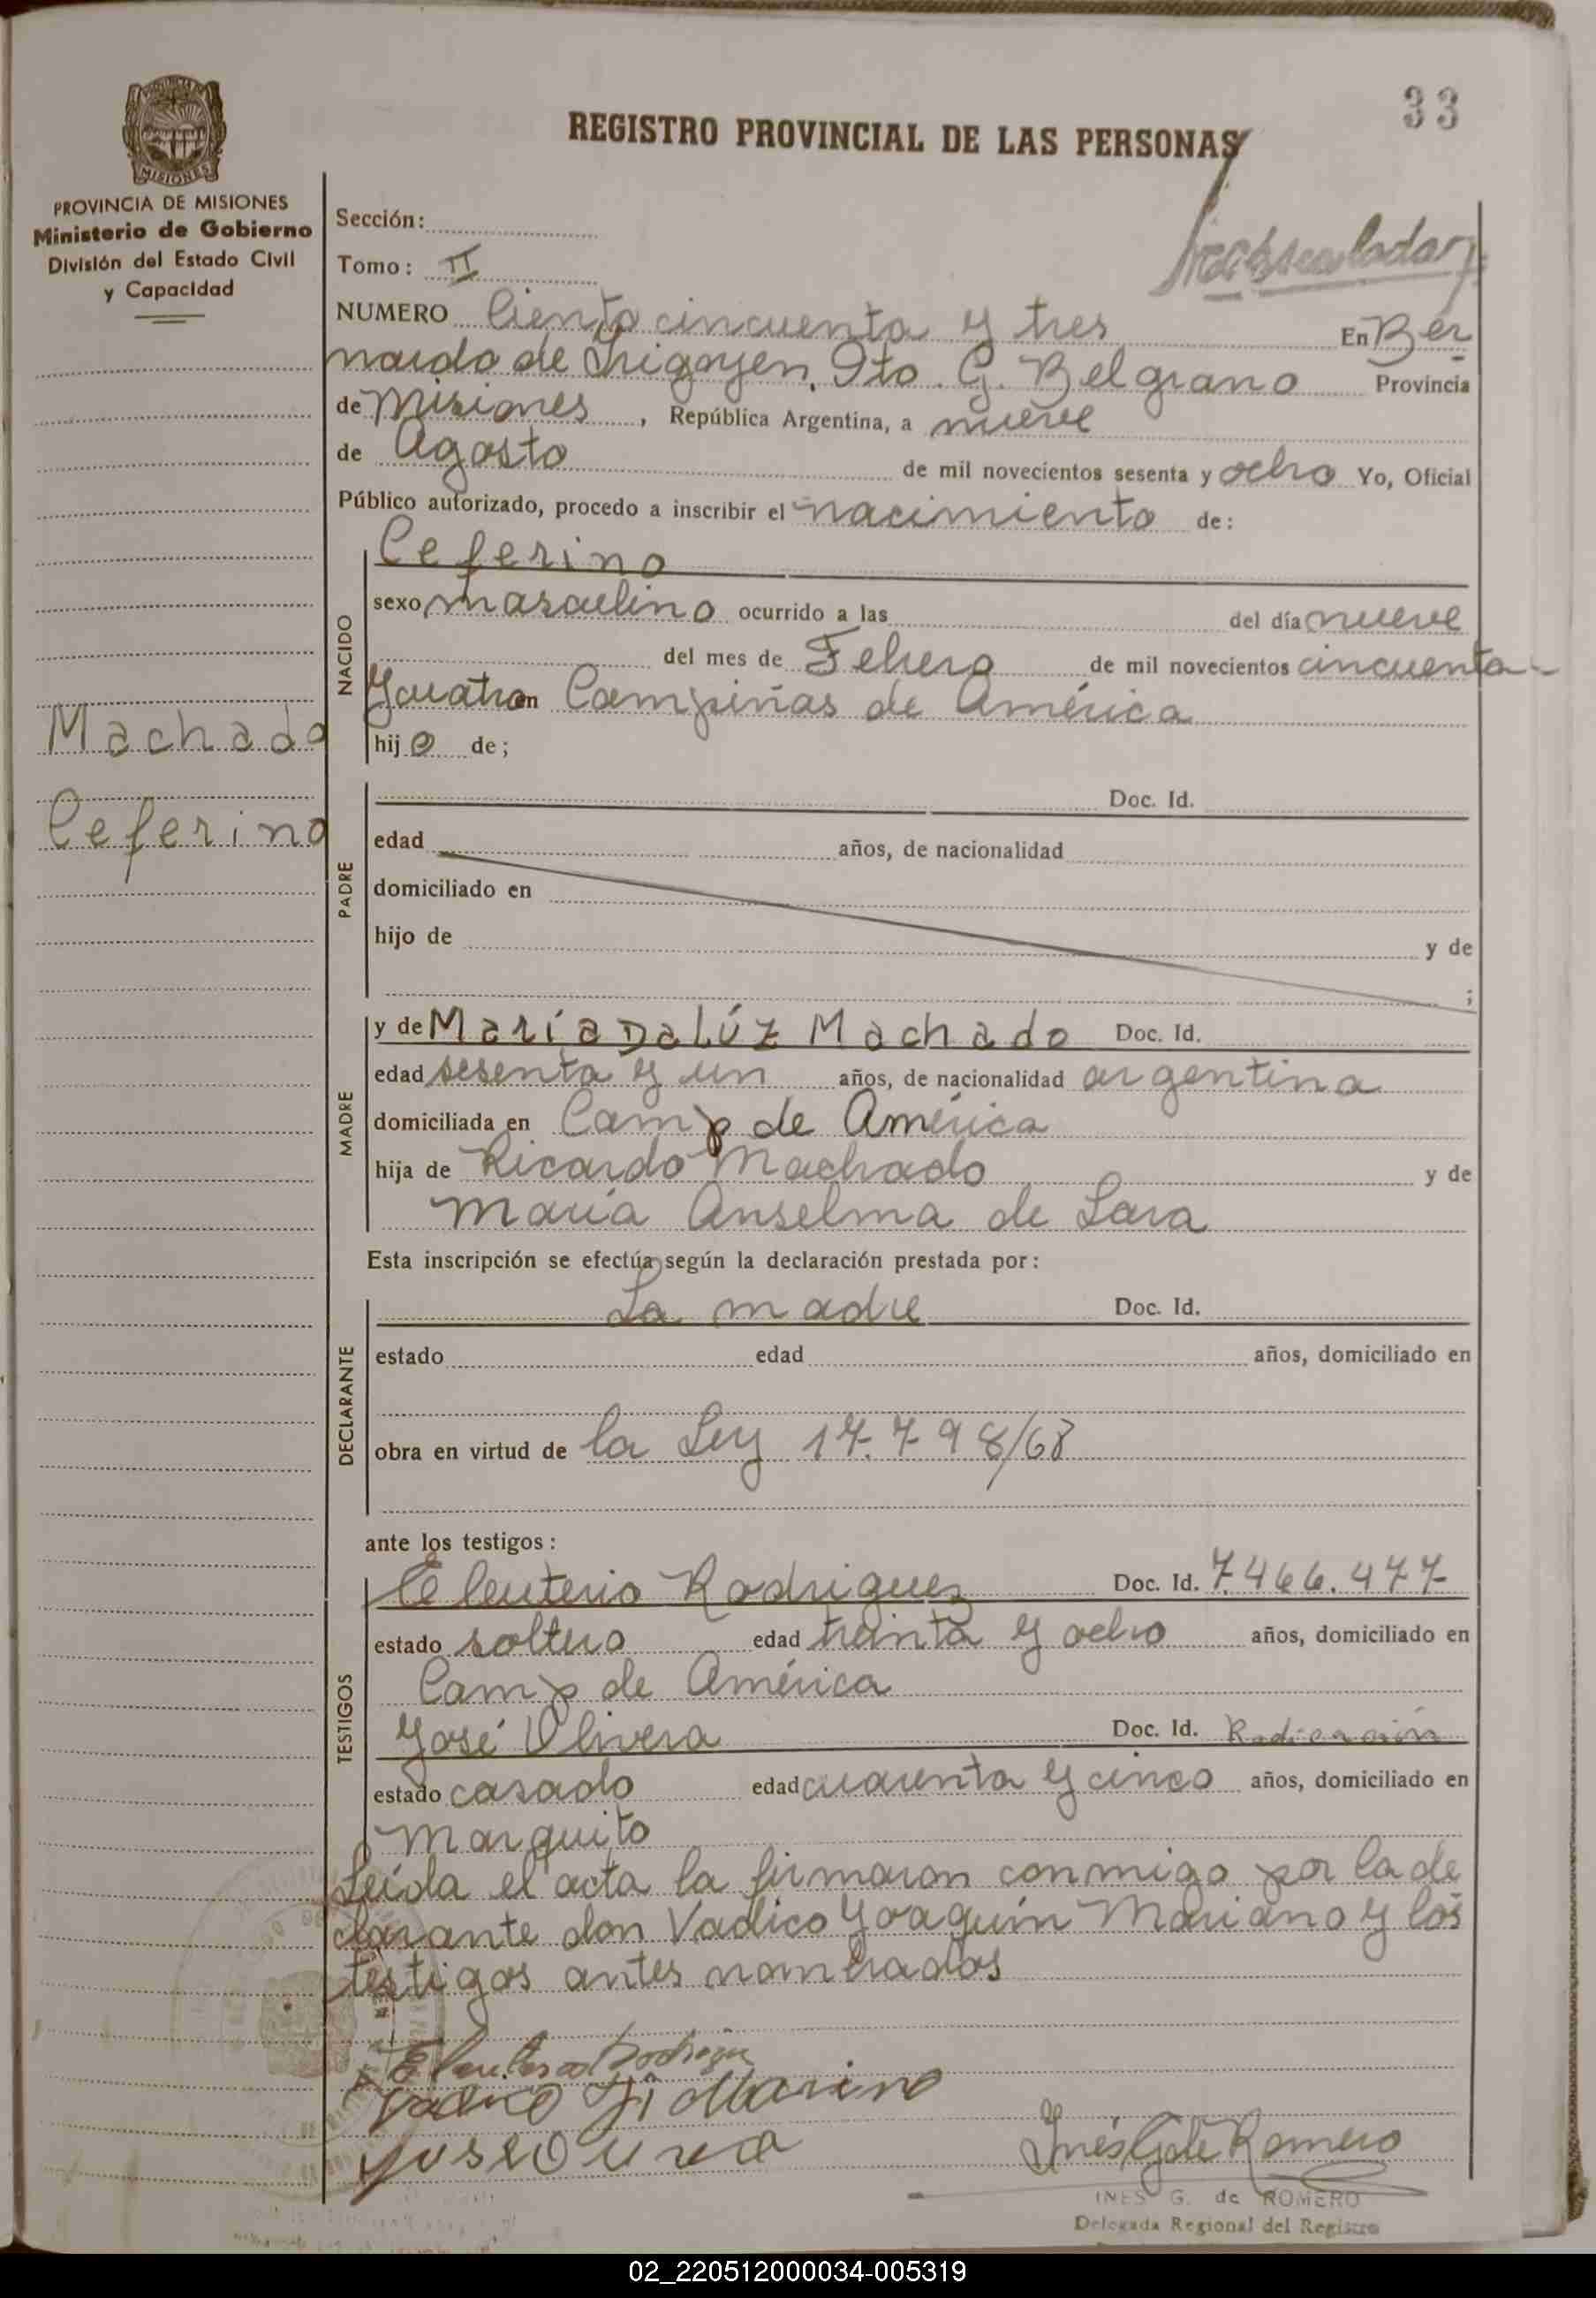 33
REGISTRO PROVINCIAL DE LAS PERSONAS
MISIONES
PROVINCIA DE MISIONES
Ministerio de Gobierno
División del Estado Civil
y Capacidad
Machado
Ceferino
Sección:
Tomo: II
NUMERO Ciento cincuenta y tres En Ber
nardo de Irigoyen, Dto. G. Belgrano Provincia
de Misiones, República Argentina, a nueve
de Agosto de mil novecientos sesenta y ocho Yo, Oficial
Público autorizado, procedo a inscribir el nacimiento de:
NACIDO
Ceferino
sexo masculino ocurrido a las del día nueve
del mes de Febrero de mil novecientos cincuenta
y cuatro en Campiñas de América
hijo de;
PADRE
Doc. Id.
edad años, de nacionalidad
domiciliado en
hijo de y de
;
MADRE
y de María Da Lúz Machado Doc. Id.
edad sesenta y un años, de nacionalidad argentina
domiciliada en Camp de América
hija de Ricardo Machado y de
María Anselma de Lara
Esta inscripción se efectúa según la declaración prestada por:
DECLARANTE
La madre Doc. Id.
estado edad años, domiciliado en
obra en virtud de la Ley 17.798/68
ante los testigos:
TESTIGOS
Eleuterio Rodriguez Doc. Id. 7.466.477
estado soltero edad treinta y ocho años, domiciliado en
Camp de América
José Olivera Doc. Id. Radicación
estado casado edad cuarenta y cinco años, domiciliado en
Marquito
Leída el acta la firmaron conmigo por la de
clarante don Vadico Yoaquin Mariano y los
testigos antes nombrados
Inés G de Romero
INES G. de ROMERO
Delegada Regional del Registro
02_220512000034-005319